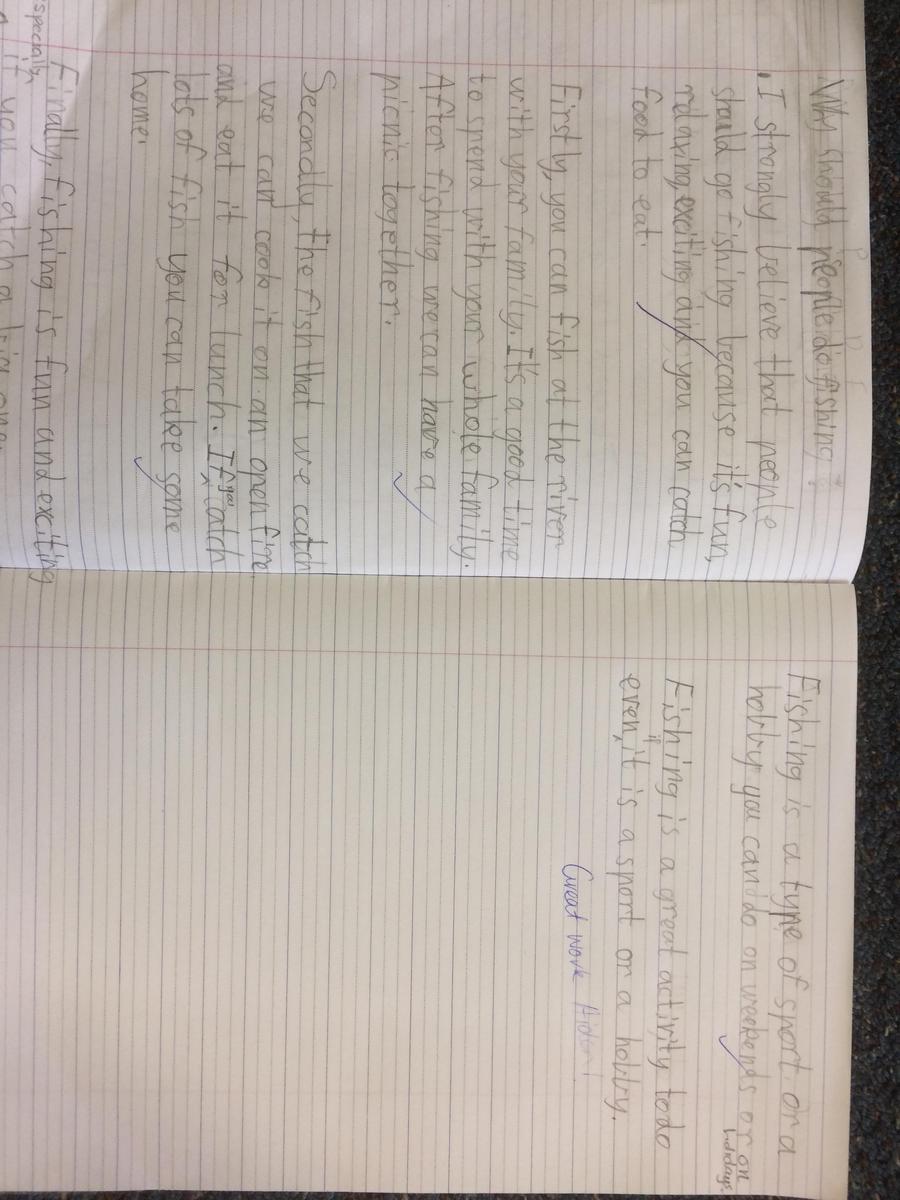 Why should people do fishing?
I strongly believe that people
should go fishing because it's fun,
relaxing, exciting and you can catch
food to eat.
Firstly, you can fish at the river
with your family. It's a good time
to spend with your whole family.
After fishing we can have a
picnic together.
Secondly, the fish that we catch
we can cook it on an open fire
and eat it for lunch. If you catch
lots of fish you can take some
home.
Finally, fishing is fun and exciting
especially
if you catch a big one.
Fishing is a type of sport or a
hobby you can do on weekends or on
holidays.
Fishing is a great activity to do
even if it is a sport or a hobby.
Great work Aiden!